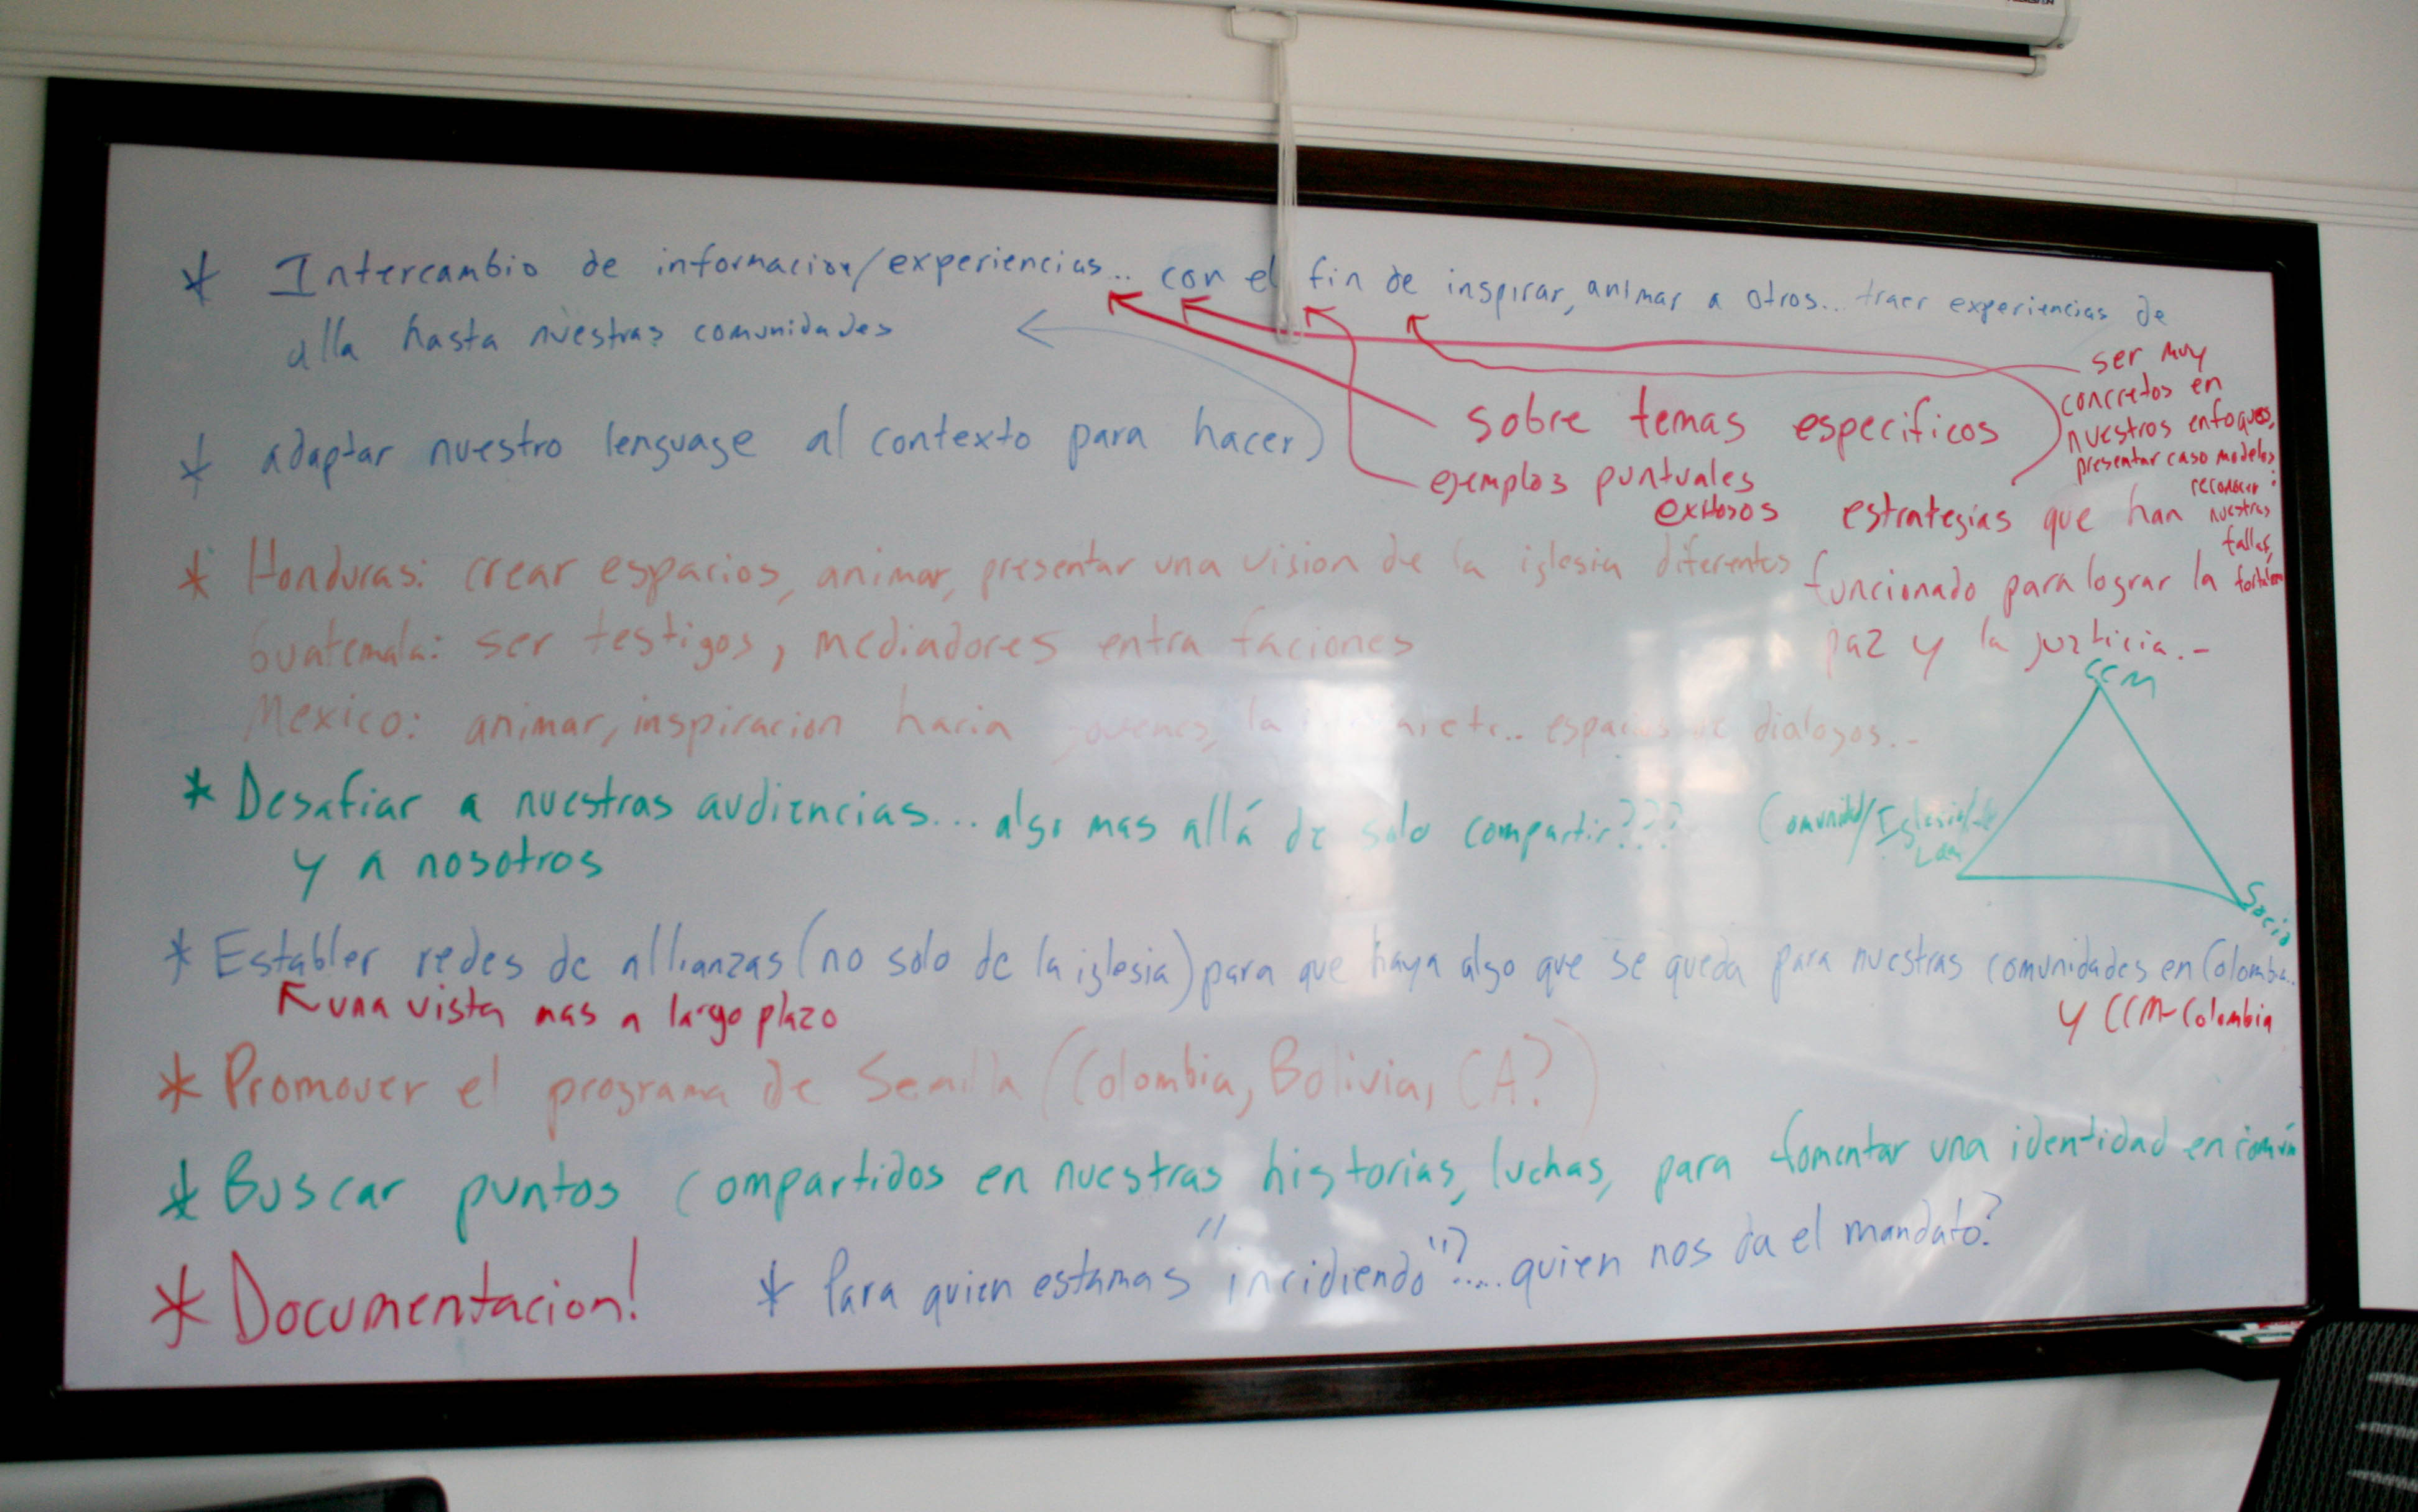 * Intercambio de informacion/experiencias... con el fin de inspirar, animar a otros... traer experiencias de
alla hasta nuestras comunidades
ser muy
concretos en
nuestros enfoques,
presentar caso modelos
reconocer
nuestras
fallas,
* adaptar nuestro lenguage al contexto para hacer)
sobre temas especificos
ejemplos puntuales
exitosos
estrategias que han
funcionado para lograr la
paz y la justicia.-
* Honduras: crear espacios, animar, presentar una vision de la iglesia diferentes
Guatemala: ser testigos, mediadores entra faciones
Mexico: animar, inspiracion hacia jovenes, la etc.. espacios de dialogos.-
CCM
* Desafiar a nuestras audiencias... algo mas allá de solo compartir???
y a nosotros
Comunidad/Iglesia/
Socio
* Establer redes de allianzas (no solo de la iglesia) para que haya algo que se queda para nuestras comunidades en Colombia..
una vista mas a largo plazo
y CCM-Colombia
* Promover el programa de Semilla (Colombia, Bolivia, CA?)
* Buscar puntos compartidos en nuestras historias, luchas, para fomentar una identidad en común
* Documentacion!
* Para quien estamas "incidiendo"?.... quien nos da el mandato?